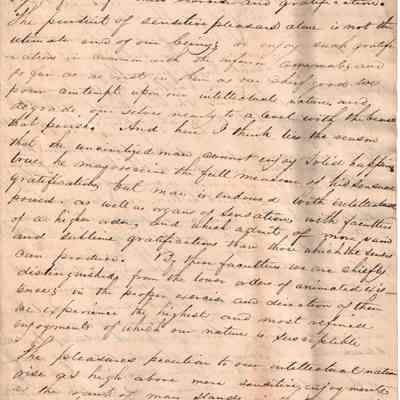 and gratification.
The pursuit of sensitive pleasure alone is not the
ultimate end of our being; we enjoy such gratifi
cations in common with the inferior animals; and
so far as we rest in them as our chief good, we
pour contempt upon our intellectual nature, and
degrade our selves nearly to a level with the beasts
that perish. And here I think lies the reason
that the uncivilized man cannot enjoy solid happi
he may receive the full measure of his sensual
gratification, but man is endowed with intellectual
powers, as well as organs of sensation, with faculties
of a higher order, and which admit of more
and sublime gratifications than those which the senses
can produce. By these faculties we are chiefly
distinguished from the lower orders of animated
in the proper exercise and direction of them
we experience the highest and most refined
enjoyments of which our nature is susceptible
The pleasures peculiar to our intellectual nature
rise as high above mere sensitive enjoyments
as the of man stands